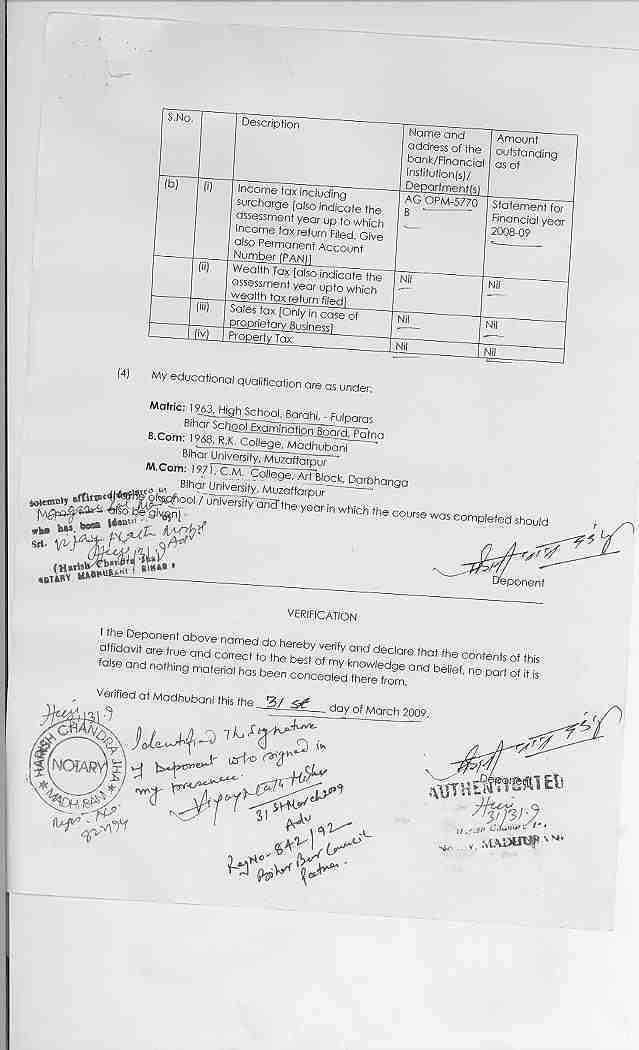 S.No.
Description
Name and
address of the
bank/Financial
Institution(s)/
Department(s)
Amount
outstanding
as of
(b)
(i)
Income tax including
surcharge [also indicate the
assessment year up to which
Income tax return Filed. Give
also Permanent Account
Number (PAN)]
AG OPM-5770
B
Statement for
Financial year
2008-09
(ii)
Wealth Tax [also indicate the
assessment year upto which
wealth tax return filed]
Nil
Nil
(iii)
Sales tax [Only in case of
proprietary Business]
Nil
Nil
(iv)
Property Tax
Nil
Nil
(4) My educational qualification are as under;
Matric: 1963, High School, Barahi, - Fulparas
Bihar School Examination Board, Patna
B.Com: 1968, R.K. College, Madhubani
Bihar University, Muzaffarpur
M.Com: 1971, C.M. College, Art Block, Darbhanga
Bihar University, Muzaffarpur
school / university and the year in which the course was completed should
also be given]
Solemnly affirmed/declared
who has been
Sri.
(Harish Chandra Jha)
NOTARY MADHUBANI (BIHAR)
Deponent
VERIFICATION
I the Deponent above named do hereby verify and declare that the contents of this
affidavit are true and correct to the best of my knowledge and belief, no part of it is
false and nothing material has been concealed there from.
Verified at Madhubani this the 31 st day of March 2009.
HARISH CHANDRA JHA
NOTARY
MADHUBANI
Regn. No.
82/94
Identified The Signature
of Deponent who signed in
my presence.
31 St March 2009
Adv
Reg No- 842/92
Bihar Bar Council
Patna.
Deponent
AUTHENTICATED